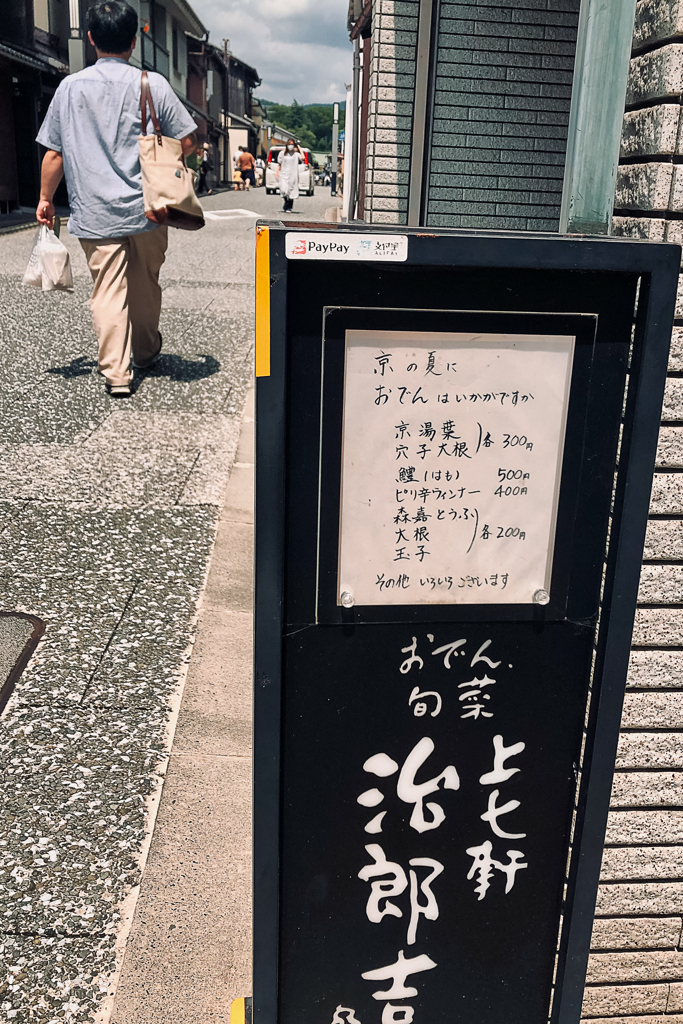 PayPay
京の夏に
おでんはいかがですか
京湯葉
穴子大根 各300円
鱧(はも) 500円
ピリ辛ウィンナー 400円
森嘉とうふ
大根 各200円
玉子
その他 いろいろございます
おでん.
旬菜
上七軒
治郎吉